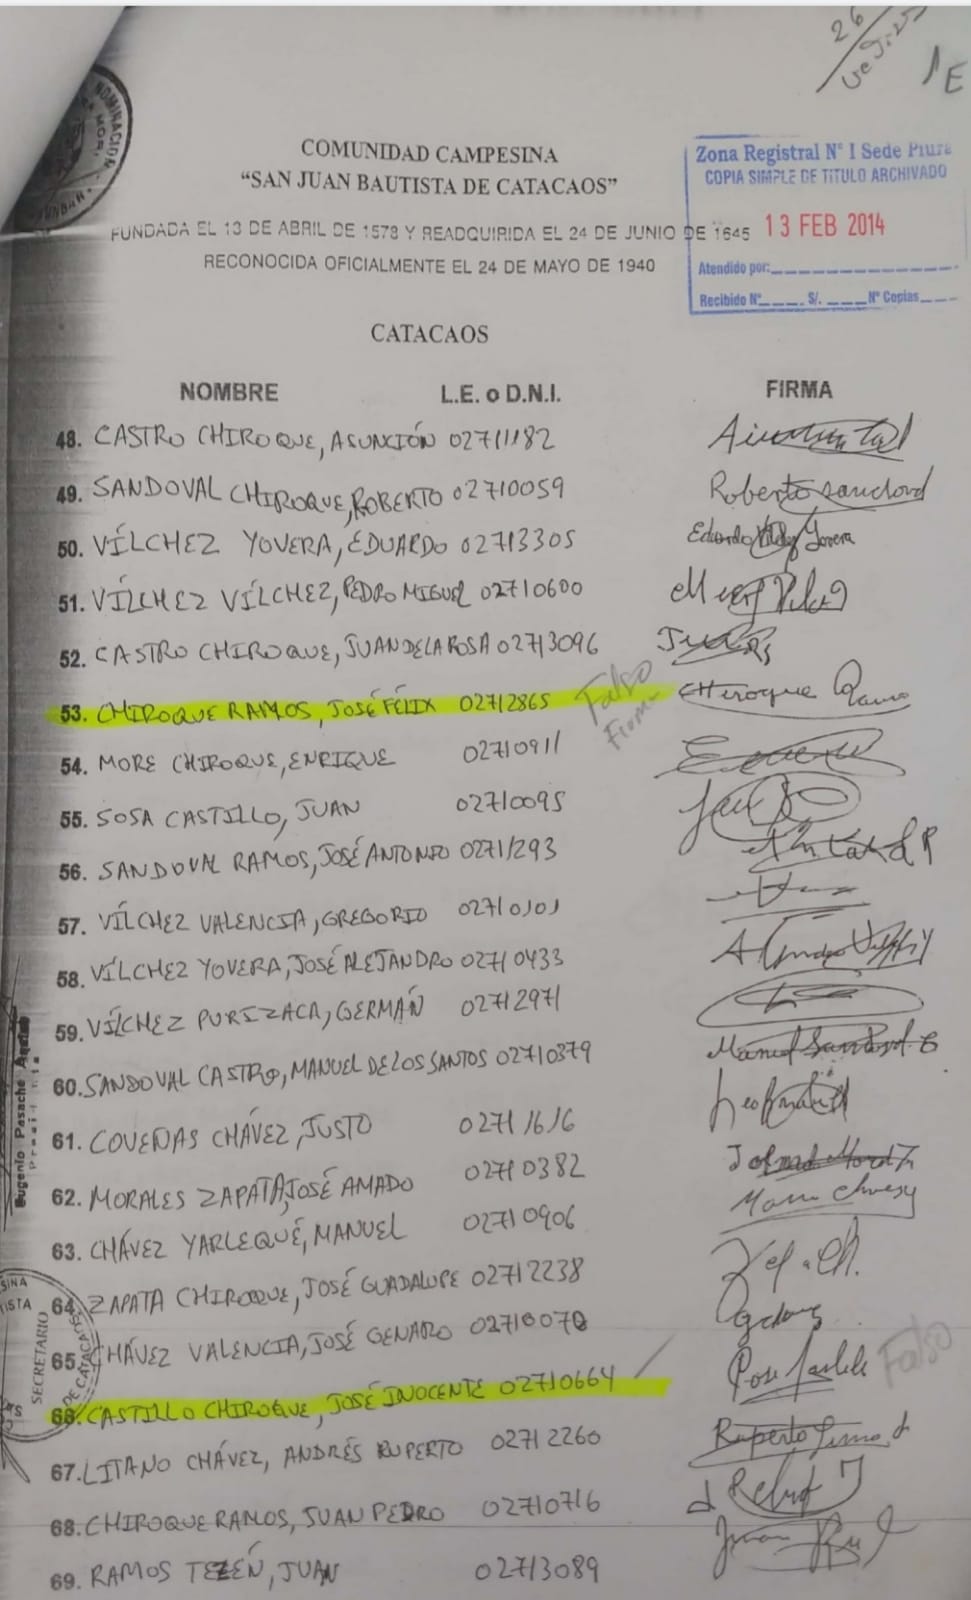 26
1E
NOMINACION
COMUNIDAD CAMPESINA
“SAN JUAN BAUTISTA DE CATACAOS”
FUNDADA EL 13 DE ABRIL DE 1578 Y READQUIRIDA EL 24 DE JUNIO DE 1645
RECONOCIDA OFICIALMENTE EL 24 DE MAYO DE 1940
Zona Registral N° I Sede Piura
COPIA SIMPLE DE TITULO ARCHIVADO
13 FEB 2014
Atendido por:
Recibido N° S/. N° Copias
CATACAOS
NOMBRE L.E. o D.N.I. FIRMA
48. CASTRO CHIROQUE, ASUNCIÓN 02711182
49. SANDOVAL CHIROQUE, ROBERTO 02710059 Roberto Sandoval
50. VÍLCHEZ YOVERA, EDUARDO 02713305 Eduardo Vilchez Yovera
51. VÍLCHEZ VÍLCHEZ, PEDRO MIGUEL 02710600
52. CASTRO CHIROQUE, JUAN DE LA ROSA 02713096
53. CHIROQUE RAMOS, JOSÉ FÉLIX 02712865 Falso Firma Chiroque Ramos
54. MORE CHIROQUE, ENRIQUE 02710911
55. SOSA CASTILLO, JUAN 02710095
56. SANDOVAL RAMOS, JOSÉ ANTONIO 02711293
57. VÍLCHEZ VALENCIA, GREGORIO 02710101
58. VÍLCHEZ YOVERA, JOSÉ ALEJANDRO 02710433
59. VÍLCHEZ PURIZACA, GERMÁN 02712971
60. SANDOVAL CASTRO, MANUEL DE LOS SANTOS 02710379 Manuel Sandoval C
61. COVEÑAS CHÁVEZ, JUSTO 02711616
62. MORALES ZAPATA, JOSÉ AMADO 02710382
63. CHÁVEZ YARLEQUÉ, MANUEL 02710906
64. ZAPATA CHIROQUE, JOSÉ GUADALUPE 02712238
65. CHÁVEZ VALENCIA, JOSÉ GENARO 02710070
66. CASTILLO CHIROQUE, JOSÉ INOCENTE 02710664 Falso
67. LITANO CHÁVEZ, ANDRÉS RUPERTO 02712260 Ruperto
68. CHIROQUE RAMOS, JUAN PEDRO 02710716
69. RAMOS TEZÉN, JUAN 02713089
Eugenio Pasache
SECRETARIO
DE CATACAOS